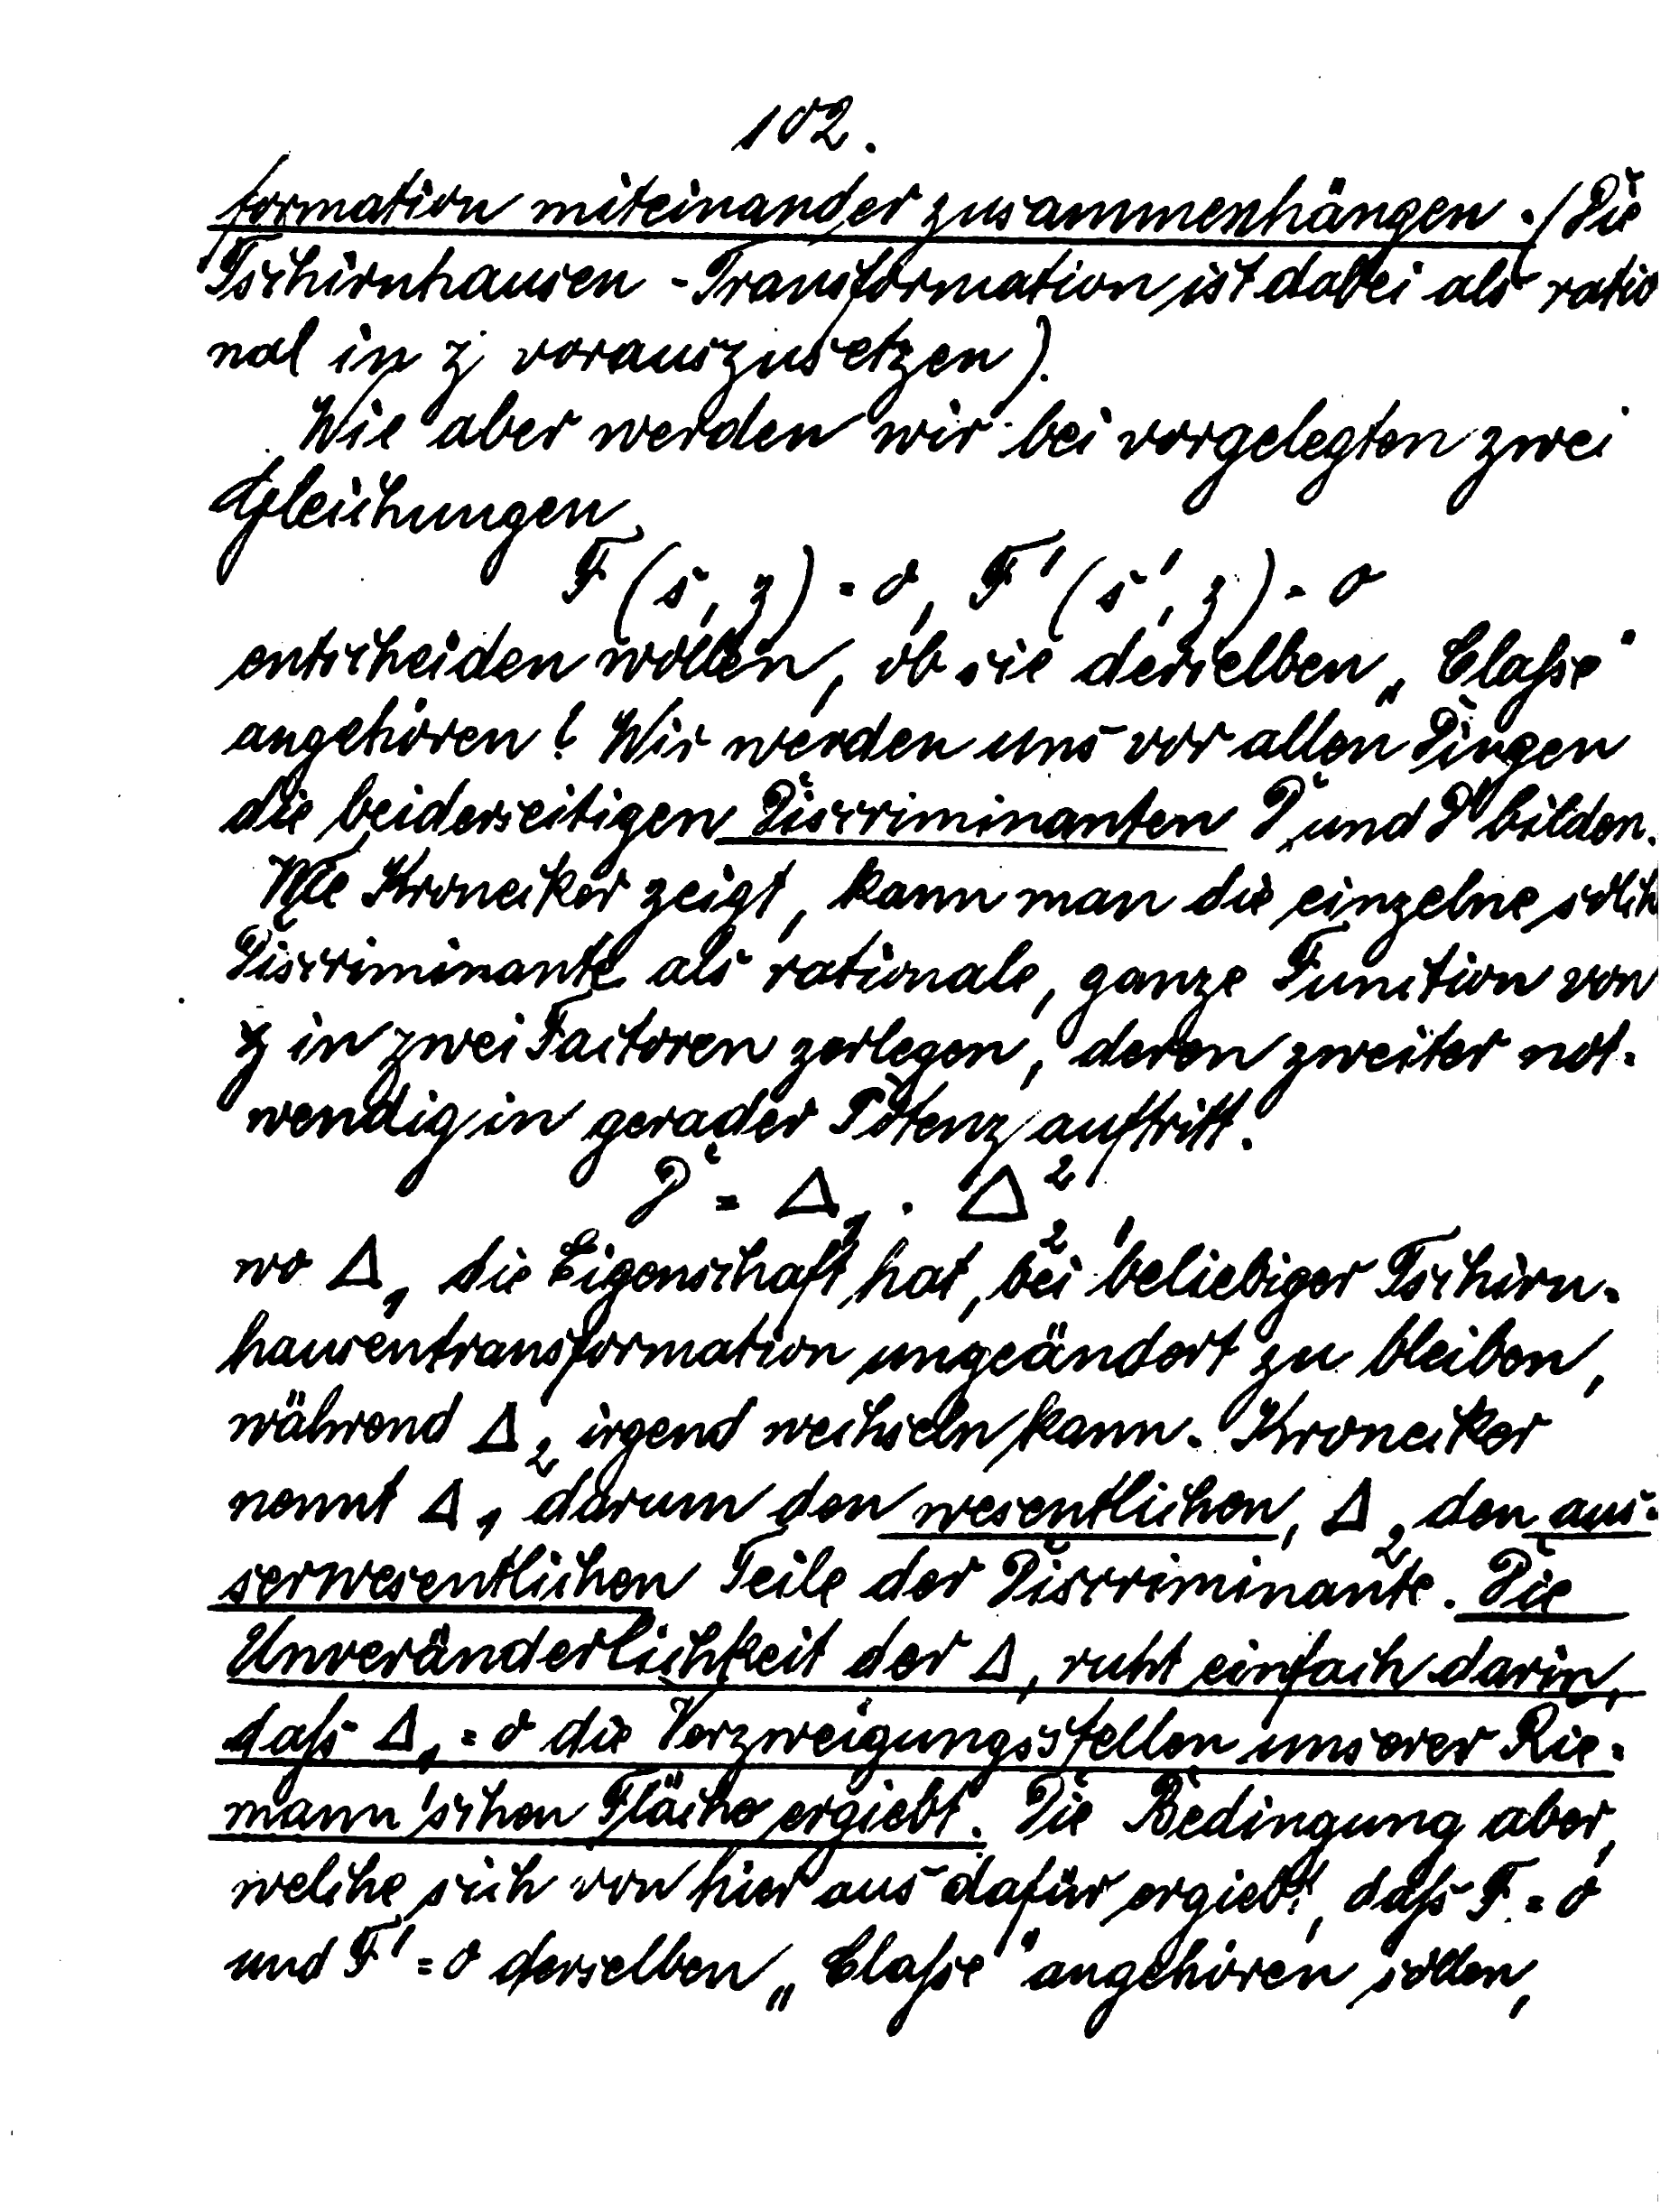 102.
formation miteinander zusammenhängen. (Die
Tschirnhausen-Transformation ist dabei als ratio
nal in z vorauszusetzen).
Wie aber werden wir bei vorgelegten zwei
Gleichungen
F (s, z) = 0, F' (s', z) = 0
entscheiden wollen, ob sie derselben „Classe“
angehören? Wir werden uns vor allen Dingen
die beiderseitigen Discriminanten D und D' bilden.
Wie Kronecker zeigt, kann man die einzelne solch
Discriminante als rationale, ganze Function von
z in zwei Factoren zerlegen, deren zweiter not-
wendig in gerader Potenz auftritt.
D = Δ₁ · Δ₂²,
wo Δ₁ die Eigenschaft hat, bei beliebiger Tschirn-
hausentransformation ungeändert zu bleiben,
während Δ₂ irgend wechseln kann. Kronecker
nennt Δ₁ darum den wesentlichen, Δ₂ den aus-
serwesentlichen Teile der Discriminante. Die
Unveränderlichkeit der Δ₁ ruht einfach darin,
daß Δ₁ = 0 die Verzweigungsstellen unserer Rie-
mann'schen Fläche ergiebt. Die Bedingung aber,
welche sich von hier aus dafür ergiebt, daß F = 0
und F' = 0 derselben „Classe“ angehören sollen,